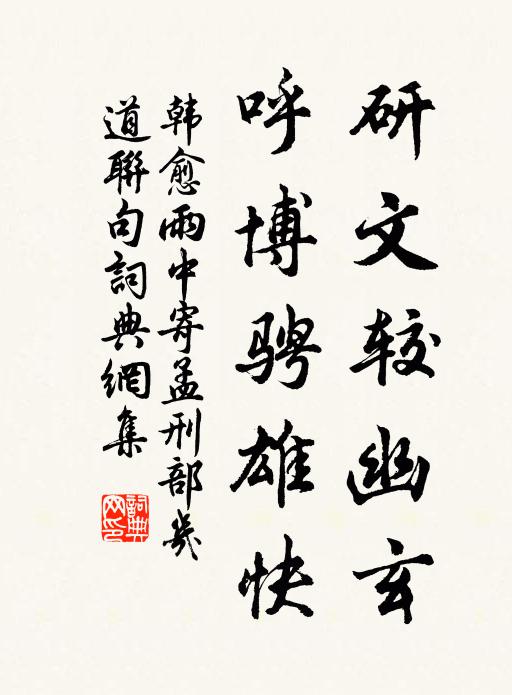 研文较幽玄
呼博骋雄快
韩愈雨中寄孟刑部几
道聯句詞典網集
詞典网印